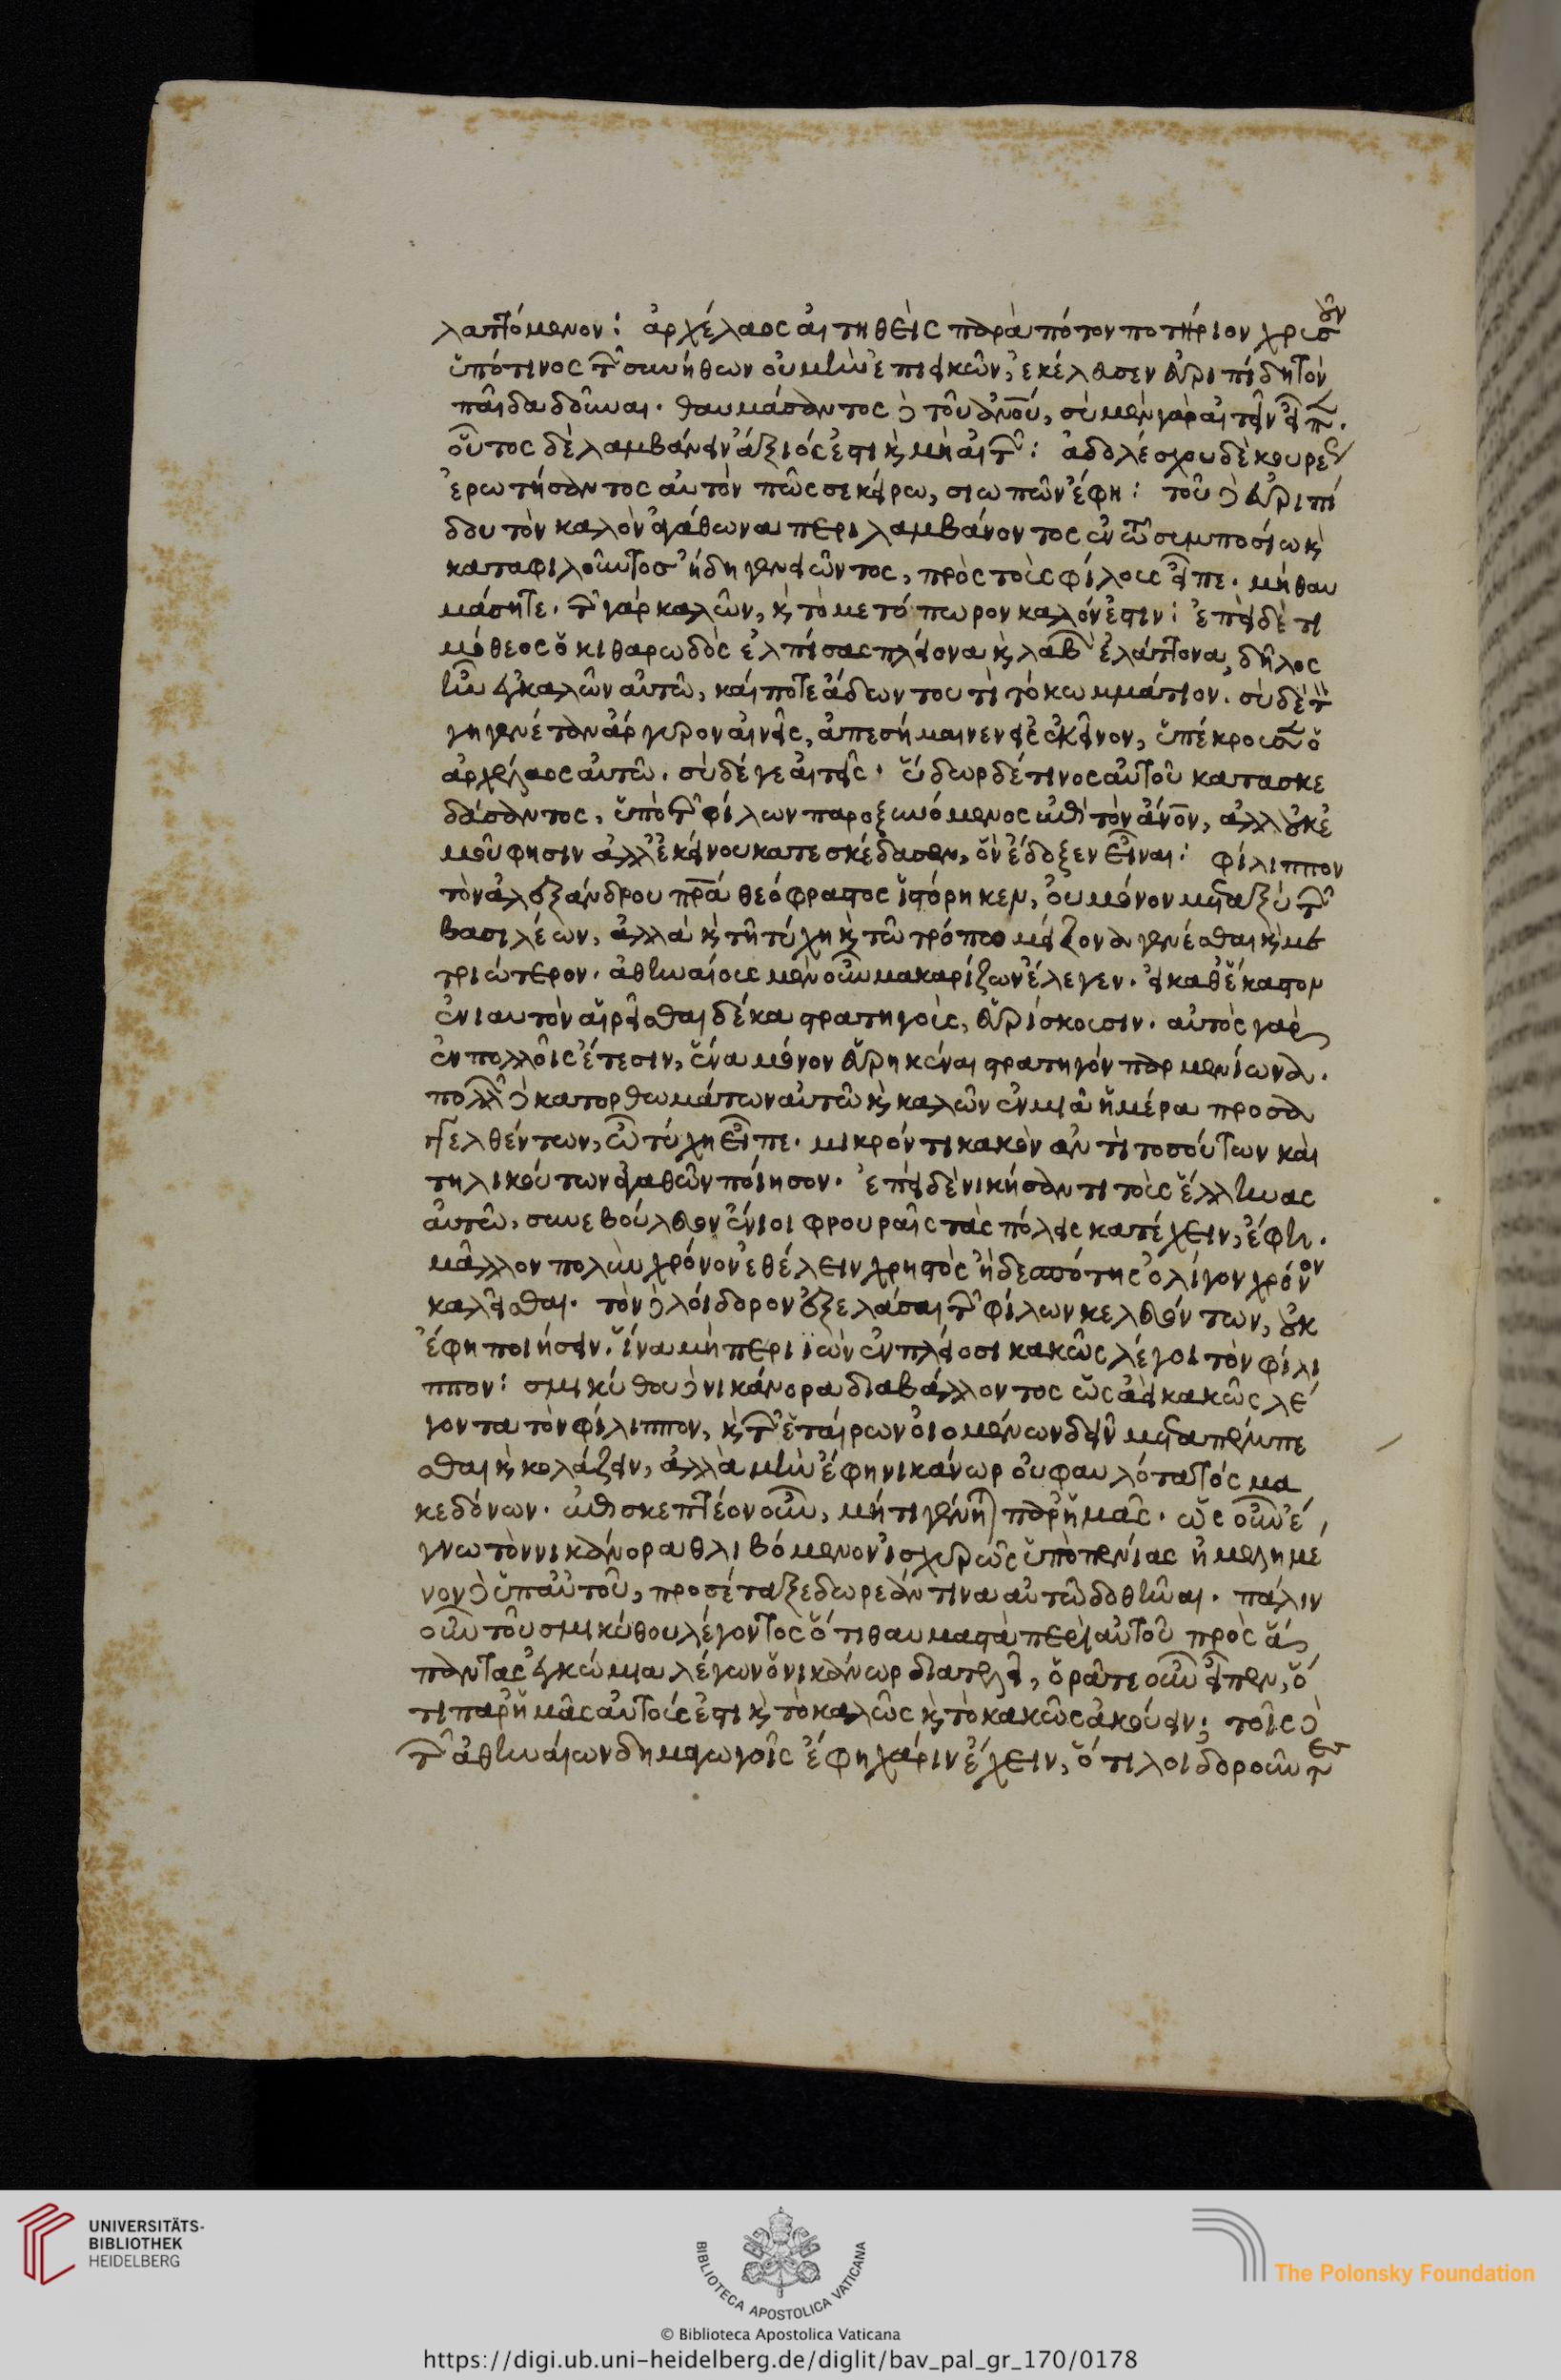 λαπτόμενον: ἀρχέλαος αἰτηθεὶς παρὰ πότον ποτήριον χρυσοῦν
ὑπό τινος τῶν συνήθων οὐ μὴν ἐπιεικῶν, ἐκέλευσεν εὐριπίδη τὸν
παῖδα δοῦναι. θαυμάσαντος δὲ τοῦ ἀνου, σὺ μὲν γὰρ αἰτεῖν εἶπεν.
οὗτος δὲ λαμβάνειν ἄξιός ἐστι καὶ μὴ αἰτῶν: ἀδολέσχου δὲ κουρέως
ἐρωτήσαντος αὐτὸν πῶς σε κείρω, σιωπῶν ἔφη: τοῦ δὲ εὐριπί
δου τὸν καλὸν ἀγάθωνα περιλαμβάνοντος ἐν τῶ συμποσίω καὶ
καταφιλοῦντος ἤδη γενειῶντος, πρὸς τοὺς φίλους εἶπε. μὴ θαυ
μάσητε. τῶν γὰρ καλῶν, καὶ τὸ μετόπωρον καλόν ἐστιν: ἐπεὶ δὲ τι
μόθεος ὁ κιθαρωδὸς ἐλπίσας πλείονα καὶ λαβὼν ἐλάττονα, δῆλος
ἦν ἐγκαλῶν αὐτῶ, καί ποτε ἄδων τουτὶ τὸ κωμμάτιον. σὺ δὲ τὸν
γηγενέταν ἄργυρον αἰνεῖς, ἀπεσήμαινεν εἰς ἐκεῖνον, ὑπέκρουσεν ὁ
ἀρχέλαος αὐτῶ. σὺ δέ γε αἰτεῖς. ὕδωρ δέ τινος αὐτοῦ κατασκε
δάσαντος, ὑπὸ τῶν φίλων παροξυνόμενος ἐπὶ τὸν ἄνον, ἀλλ' οὐκ ἐ
μοῦ φησιν ἀλλ' ἐκείνου κατεσκέδασεν, ὃν ἔδοξεν εἶναι: φίλιππον
τὸν ἀλεξάνδρου πρα θεόφραστος ἱστόρηκεν, οὐ μόνον μεταξὺ τῶν
βασιλέων, ἀλλὰ καὶ τῆ τύχη καὶ τῶ τρόπω μείζονα γενέσθαι καὶ με
τριώτερον. ἀθηναίους μὲν οὖν μακαρίζων ἔλεγεν. εἰ καθ' ἕκαστον
ἐνιαυτὸν αἱρεῖσθαι δέκα στρατηγοὺς, εὑρίσκουσιν. αὐτὸς γὰρ
ἐν πολλοῖς ἔτεσιν, ἕνα μόνον εὑρηκέναι στρατηγὸν παρμενίωνα.
πολλῶν δὲ κατορθωμάτων αὐτῶ καὶ καλῶν ἐν μιᾶ ἡμέρα προσα
γγελθέντων, ὦ τύχη εἶπε. μικρόν τι κακὸν ἀντὶ τοσούτων καὶ
τηλικούτων ἀγαθῶν ποίησον. ἐπεὶ δὲ νικήσαντι τοὺς ἕλληνας
αὐτῶ, συνεβούλευον ἔνιοι φρουραῖς τὰς πόλεις κατέχειν, ἔφη.
μᾶλλον πολὺν χρόνον ἐθέλειν χρηστὸς ἢ δεσπότης ὀλίγον χρόνον
καλεῖσθαι. τὸν δὲ λοίδορον ἐξελάσαι τῶν φίλων κελευόντων, οὐκ
ἔφη ποιήσειν. ἵνα μὴ περιϊὼν ἐν πλείοσι κακῶς λέγοι τὸν φίλι
ππον: σμικύθου δὲ νικάνορα διαβάλλοντος ὡς ἀεὶ κακῶς λέ
γοντα τὸν φίλιππον, καὶ τῶν ἑταίρων οἰομένων δεῖν μεταπέμπε
σθαι καὶ κολάζειν, ἀλλὰ μὴν ἔφη νικάνωρ οὐ φαυλότατός μα
κεδόνων. ἐπισκεπτέον οὖν, μή τι γένηται παρ' ἡμᾶς. ὡς οὖν ἔ
γνω τὸν νικάνορα θλιβόμενον ἰσχυρῶς ὑπὸ πενίας ἠμελημέ
νον δὲ ὑπ' αὐτοῦ, προσέταξε δωρεάν τινα αὐτῶ δοθῆναι. πάλιν
οὖν τοῦ σμικύθου λέγοντος ὅτι θαυμαστὰ περὶ αὐτοῦ πρὸς ἅ
παντας ἐγκώμια λέγων ὁ νικάνωρ διατελεῖ, ὁρᾶτε οὖν εἶπεν, ὅ
τι παρ' ἡμᾶς αὐτούς ἐστι καὶ τὸ καλῶς καὶ τὸ κακῶς ἀκούειν: τοῖς δὲ
τῶν ἀθηναίων δημαγωγοῖς ἔφη χάριν ἔχειν, ὅτι λοιδοροῦντες
UNIVERSITÄTS-
BIBLIOTHEK
HEIDELBERG
BIBLIOTECA APOSTOLICA VATICANA
The Polonsky Foundation
© Biblioteca Apostolica Vaticana
https://digi.ub.uni-heidelberg.de/diglit/bav_pal_gr_170/0178